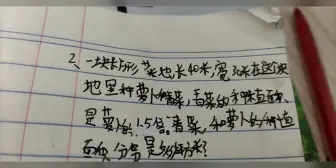 2、一块长方形菜地长40米,宽30米在这块
地里种萝卜和青菜,青菜的种植面积
是萝卜的1.5倍,青菜,和萝卜的种植
面积分别是多少平方米?